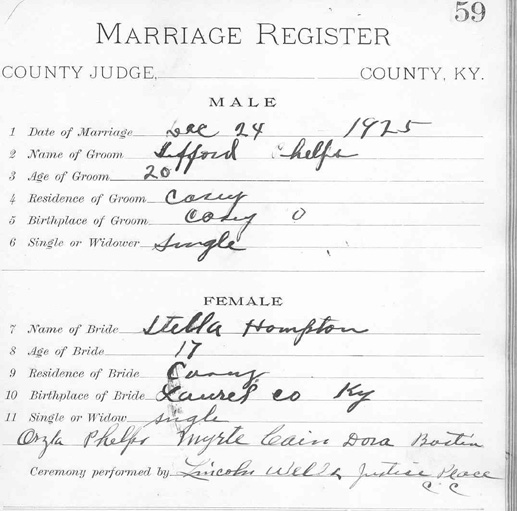 59
MARRIAGE REGISTER
COUNTY JUDGE, COUNTY, KY.
MALE
1 Date of Marriage Dec 24 1925
2 Name of Groom Phelps
3 Age of Groom 20
4 Residence of Groom Casey
5 Birthplace of Groom Casey
6 Single or Widower Single
FEMALE
7 Name of Bride Stella Hompton
8 Age of Bride 17
9 Residence of Bride Casey
10 Birthplace of Bride Laurel co Ky
11 Single or Widow single
Phelps Myrte Cain Dora Bastin
Ceremony performed by Lincoln Wells Justice Peace
C.C